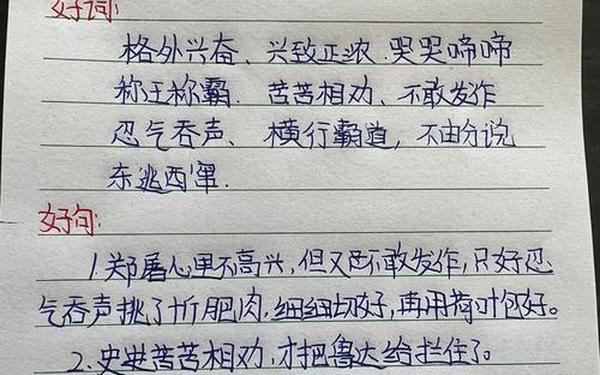 好词:
格外兴奋、兴致正浓、哭哭啼啼
称王称霸、苦苦相劝、不敢发作
忍气吞声、横行霸道,不由分说
东逃西窜.
好句:
1.郑屠心里不高兴,但又不敢发作,只好忍
气吞声挑了十斤肥肉,细细切好,再用荷叶包好。
2.史进苦苦相劝,才把鲁达给拦住了。